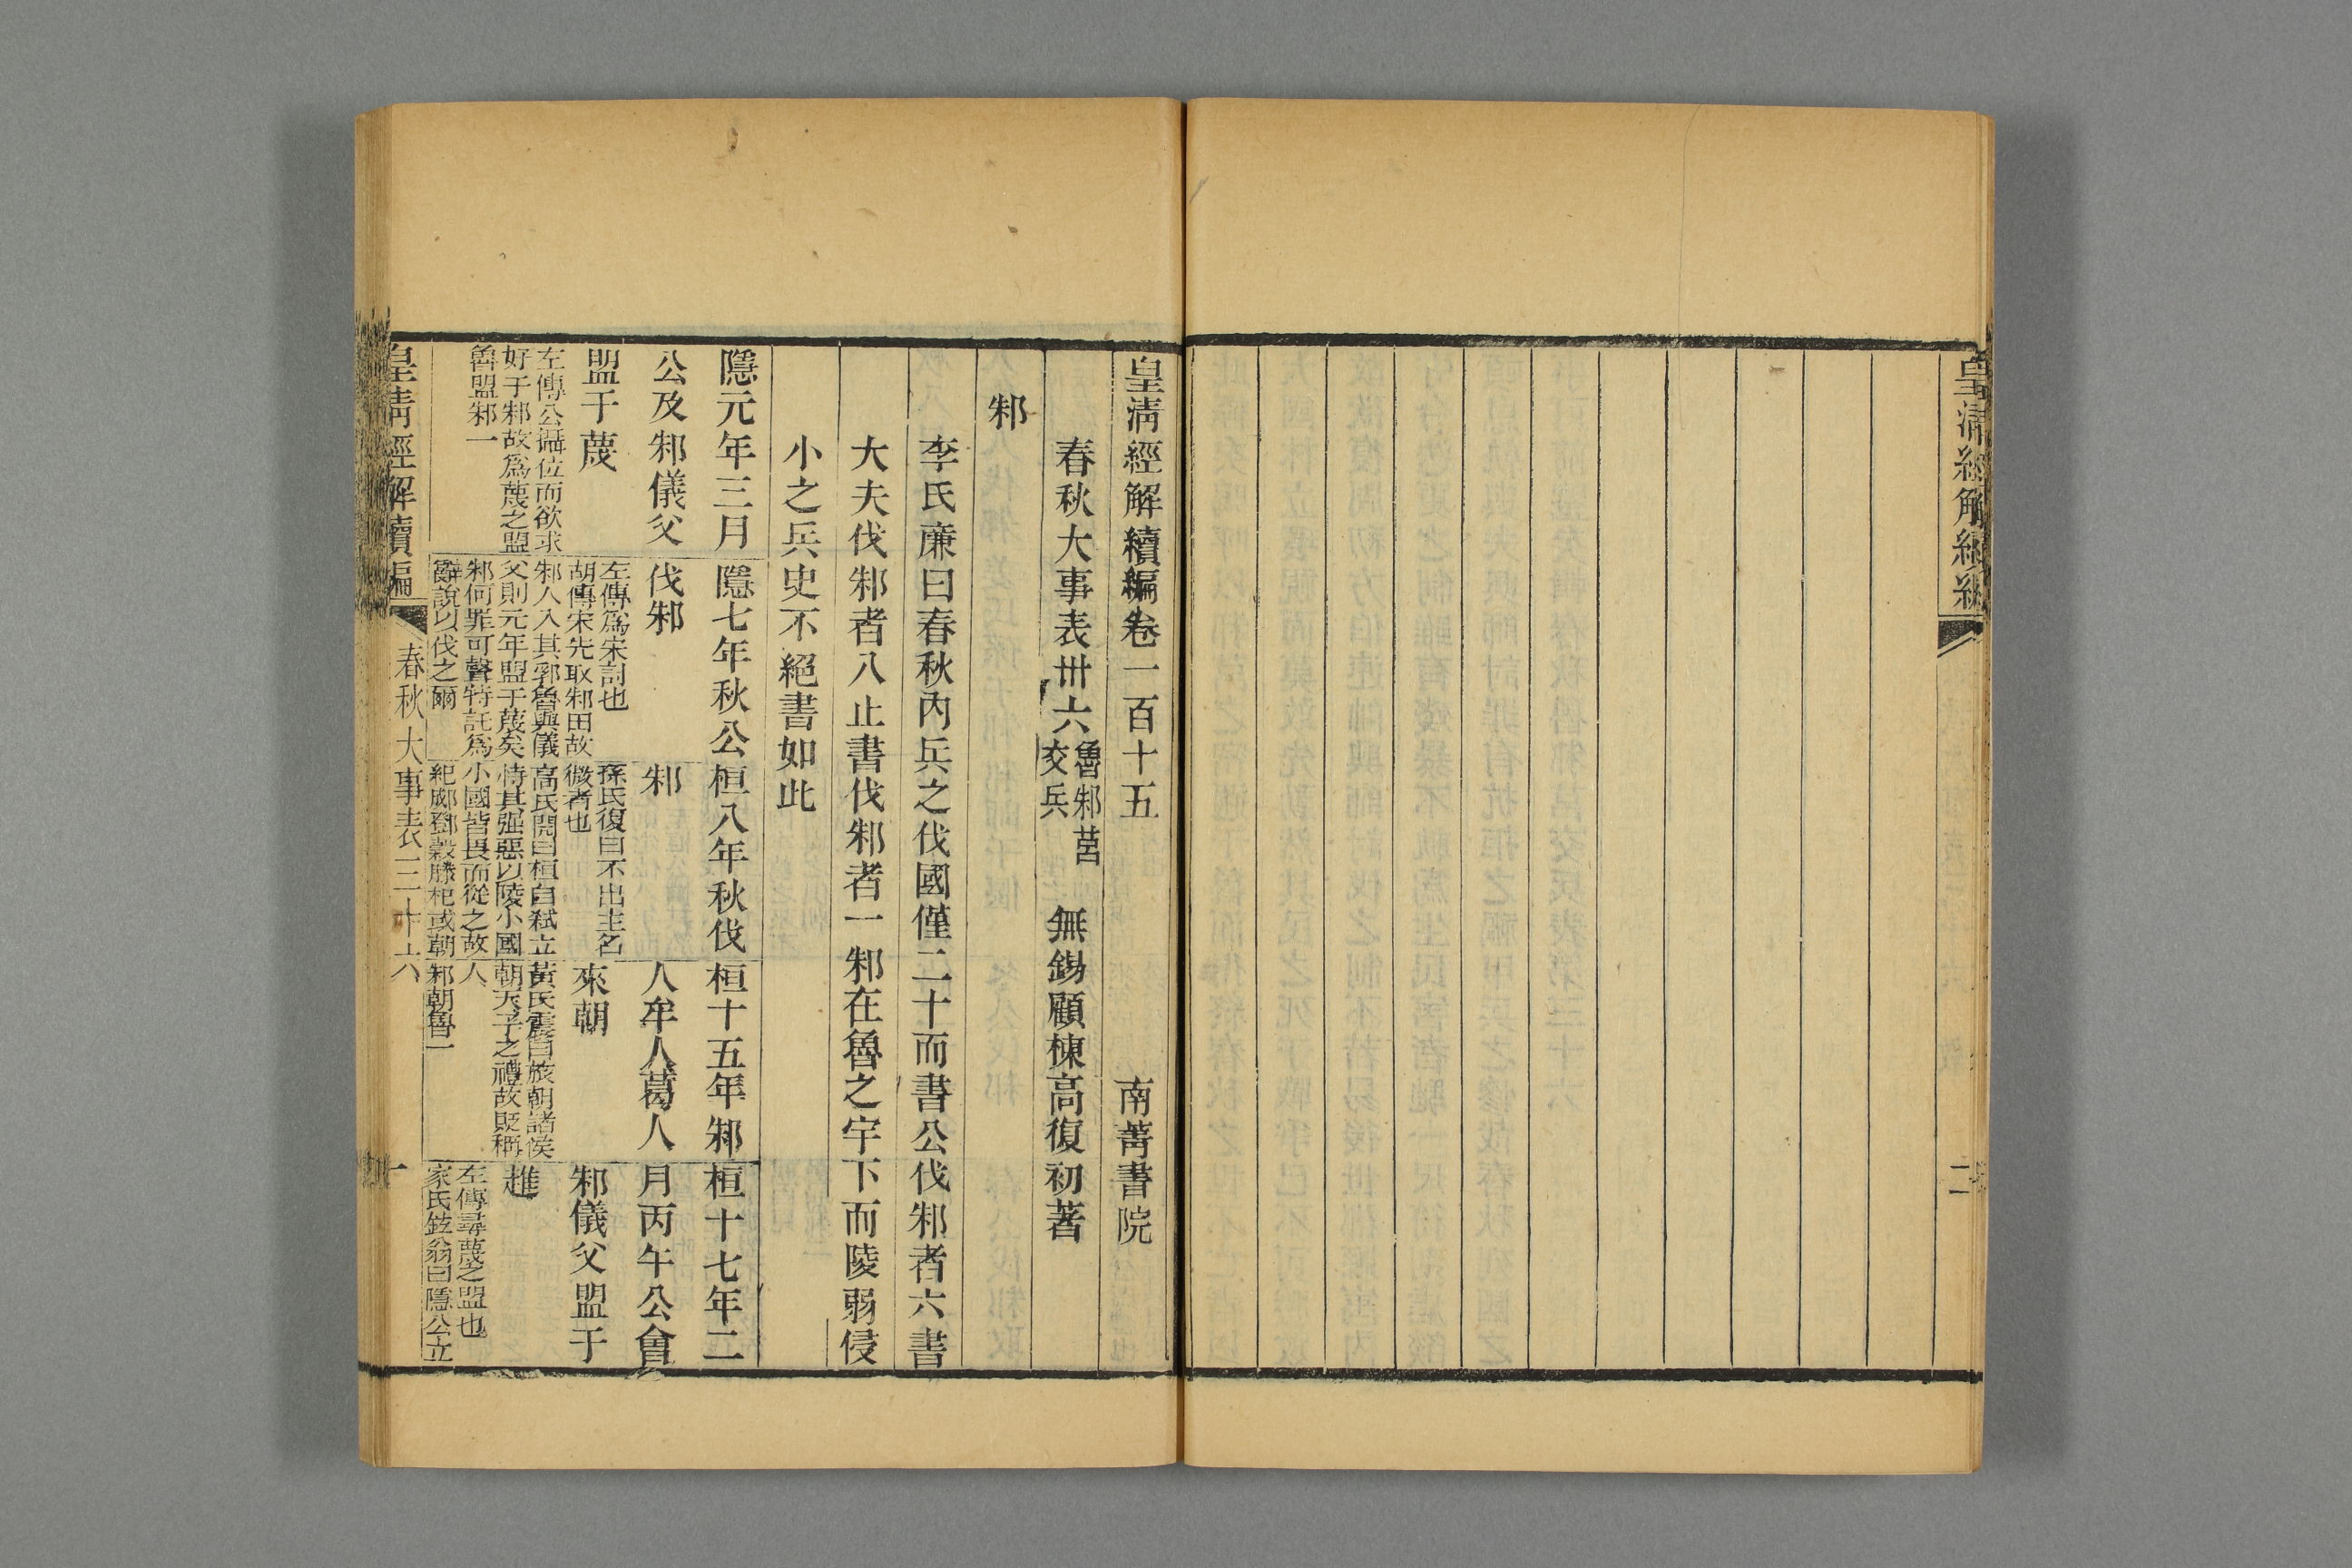 皇清經解續編
二
皇清經解續編卷一百十五
南菁書院
春秋大事表卅六
魯邾莒
交兵
無錫顧棟高復初著
邾
李氏廉曰春秋內兵之伐國僅二十而書公伐邾者六書
大夫伐邾者八止書伐邾者一邾在魯之宇下而陵弱侵
小之兵史不絕書如此
隱元年三月
公及邾儀父
盟于蔑
左傳公攝位而欲求
好于邾故爲蔑之盟
魯盟邾一
隱七年秋公
伐邾
左傳爲宋討也
胡傳宋先取邾田故
邾人入其郛魯與儀
父則元年盟于蔑矣
邾何罪可聲特託爲
辭說以伐之爾
桓八年秋伐
邾
孫氏復曰不出主名
微者也
高氏閌曰桓自弒立
恃其强惡以陵小國
小國皆畏而從之故
紀郕鄧穀滕杞或朝
桓十五年邾
人牟人葛人
來朝
黃氏震曰旅朝諸侯
朝天子之禮故貶稱
人
邾朝魯一
桓十七年二
月丙午公會
邾儀父盟于
趡
左傳尋蔑之盟也
家氏鉉翁曰隱公立
皇清經解續編
春秋大事表三十六
一